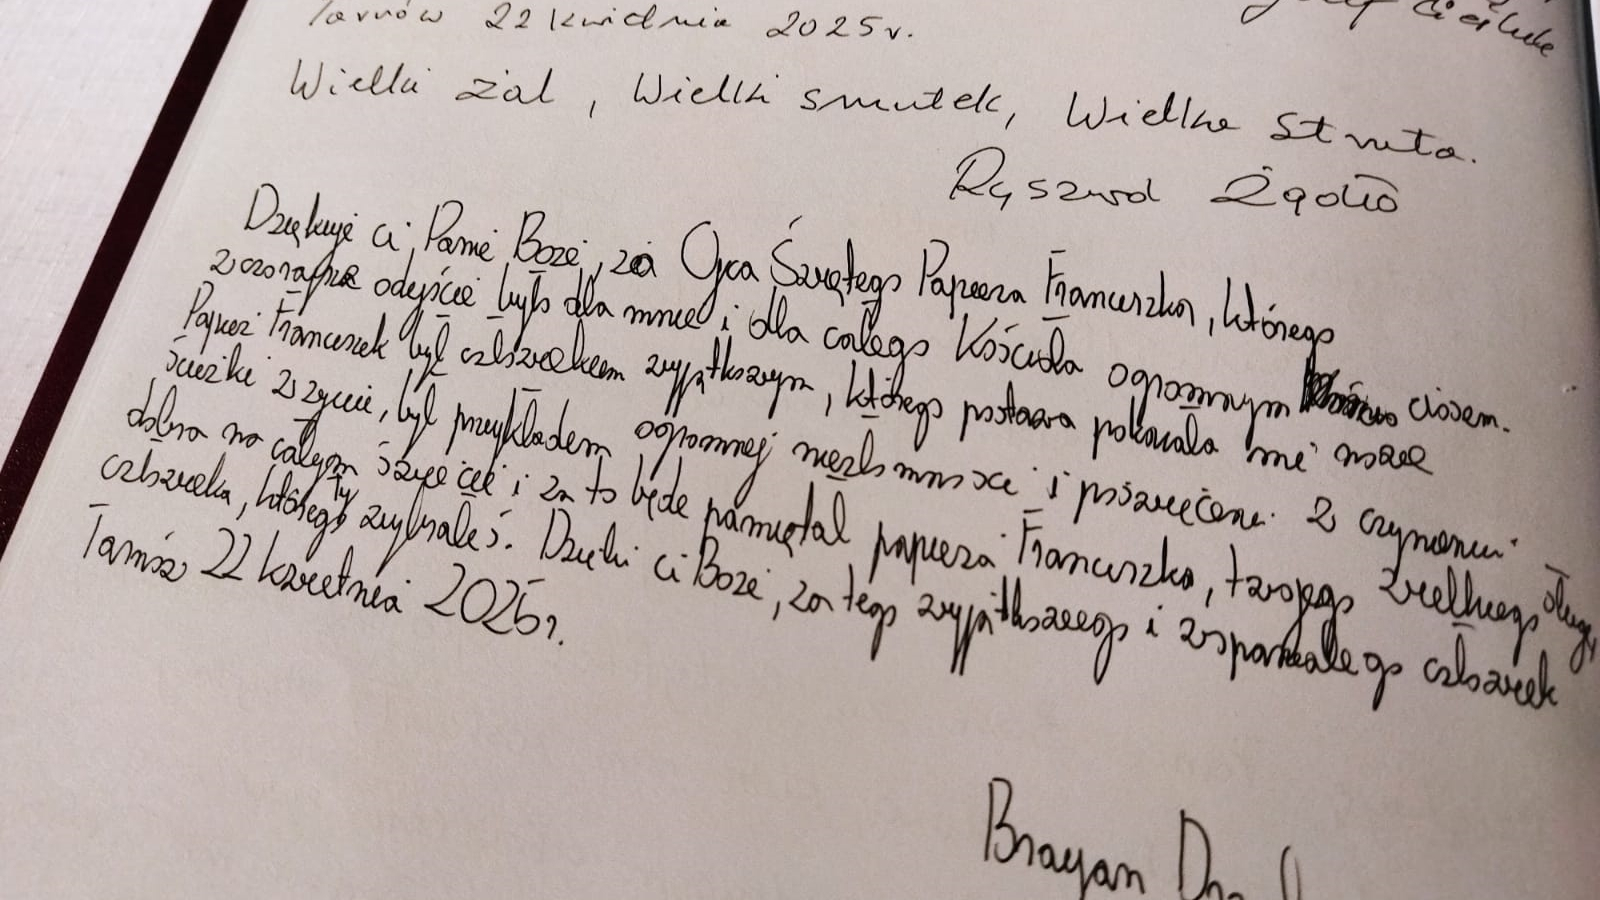 Tarnów 22 kwietnia 2025r.
Wielki żal, Wielki smutek, Wielka strata.
Ryszard
Dziękuję ci, Panie Boże, za Ojca Świętego Papieża Franciszka, którego
wczorajsze odejście było dla mnie i dla całego Kościoła ogromnym ciosem.
Papież Franciszek był człowiekiem wyjątkowym, którego postawa pokazała mi nowe
ścieżki w życiu, był przykładem ogromnej niezłomności i poświęceni w czynieniu
dobra na całym świecie i za to będę pamiętał papieża Franciszka, twojego wielkiego sługę,
człowieka, którego Ty wybrałeś. Dzięki ci Boże, za tego wyjątkowego i wspaniałego człowiek
Tarnów 22 kwietnia 2025r.
Brayan